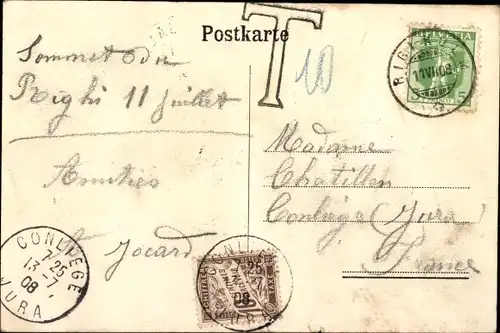 Postkarte
T
10
HELVETIA
5
RIGI
11 VII 08
Sommet du
Righi 11 juillet
Amitiés
Jocard
Madame
Chatillon
Conliège (Jura)
France
CONLIEGE
7 25
13 - 7
08
JURA
CHIFFRE
TAXE
10